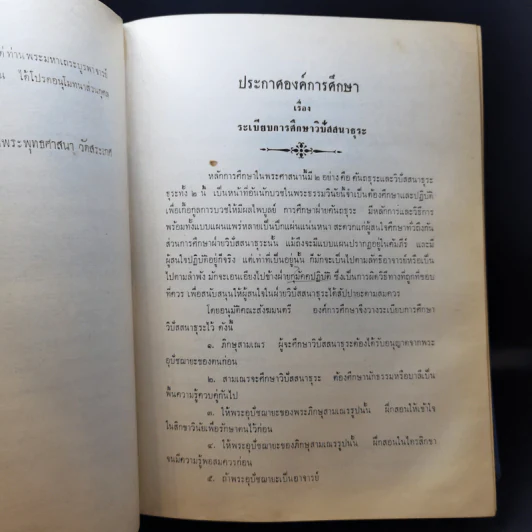 ท่านพระมหาเถระบุรพาจารย์
ได้โปรดอนุโมทนาส่วนกุศล
พระพุทธศาสนา วัดสระเกศ
ประกาศองค์การศึกษา
เรื่อง
ระเบียบการศึกษาวิปัสสนาธุระ
หลักการศึกษาในพระศาสนานี้มี ๒ อย่าง คือ คันถธุระและวิปัสสนาธุระ
ธุระทั้ง ๒ นี้ เป็นหน้าที่อันนักบวชในพระธรรมวินัยนี้จำเป็นต้องศึกษาและปฏิบัติ
เพื่อเกื้อกูลการบวชให้มีผลไพบูลย์ การศึกษาฝ่ายคันถธุระ มีหลักการและวิธีการ
พร้อมทั้งแบบแผนแพร่หลายเป็นปึกแผ่นแน่นหนา สะดวกแก่ผู้สนใจศึกษาทั่วถึงกัน
ส่วนการศึกษาฝ่ายวิปัสสนาธุระนั้น แม้ถึงจะมีแบบแผนปรากฏอยู่ในคัมภีร์ และมี
ผู้สนใจปฏิบัติอยู่ก็จริง แต่เท่าที่เป็นอยู่นั้น ก็มักจะเป็นไปตามลัทธิอาจารย์หรือเป็น
ไปตามลำพัง มักจะเอนเอียงไปข้างฝ่ายทุมัคคปฏิบัติ ซึ่งเป็นการผิดวิธีทางที่ถูกที่ชอบ
ที่ควร เพื่อสนับสนุนให้ผู้สนใจในฝ่ายวิปัสสนาธุระได้สัปปายะตามสมควร
โดยอนุมัติคณะสังฆมนตรี องค์การศึกษาจึงวางระเบียบการศึกษา
วิปัสสนาธุระไว้ ดังนี้
๑. ภิกษุสามเณร ผู้จะศึกษาวิปัสสนาธุระต้องได้รับอนุญาตจากพระ
อุปัชฌายะของตนก่อน
๒. สามเณรจะศึกษาวิปัสสนาธุระ ต้องศึกษานักธรรมหรือบาลีเป็น
พื้นความรู้ควบคู่กันไป
๓. ให้พระอุปัชฌายะของพระภิกษุสามเณรรูปนั้น ฝึกสอนให้เข้าใจ
ในสิกขาวินัยเพื่อรักษาตนไว้ก่อน
๔. ให้พระอุปัชฌายะของภิกษุสามเณรรูปนั้น ฝึกสอนในไตรสิกขา
จนมีความรู้พอสมควรก่อน
๕. ถ้าพระอุปัชฌายะเป็นอาจารย์